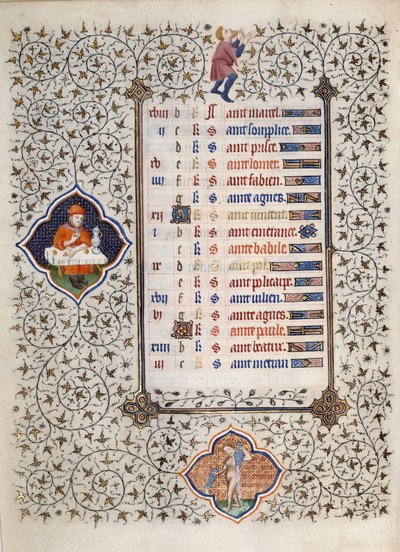 xviii b k S aint marcel
ii c k S aint souplice
d k S aint prisce
xv e k S aint lomer
iiii f k S aint fabien
g k S ainte agnes
xii A k S aint vincent
i b k S aint emerance
c k S ainte babile
ix d k S aint pol
e k S aint policarpe
xvii f k S aint iulien
vi g k S ainte agnes
A k S ainte paule
xiiii b k S aint
iii c k S aint metran